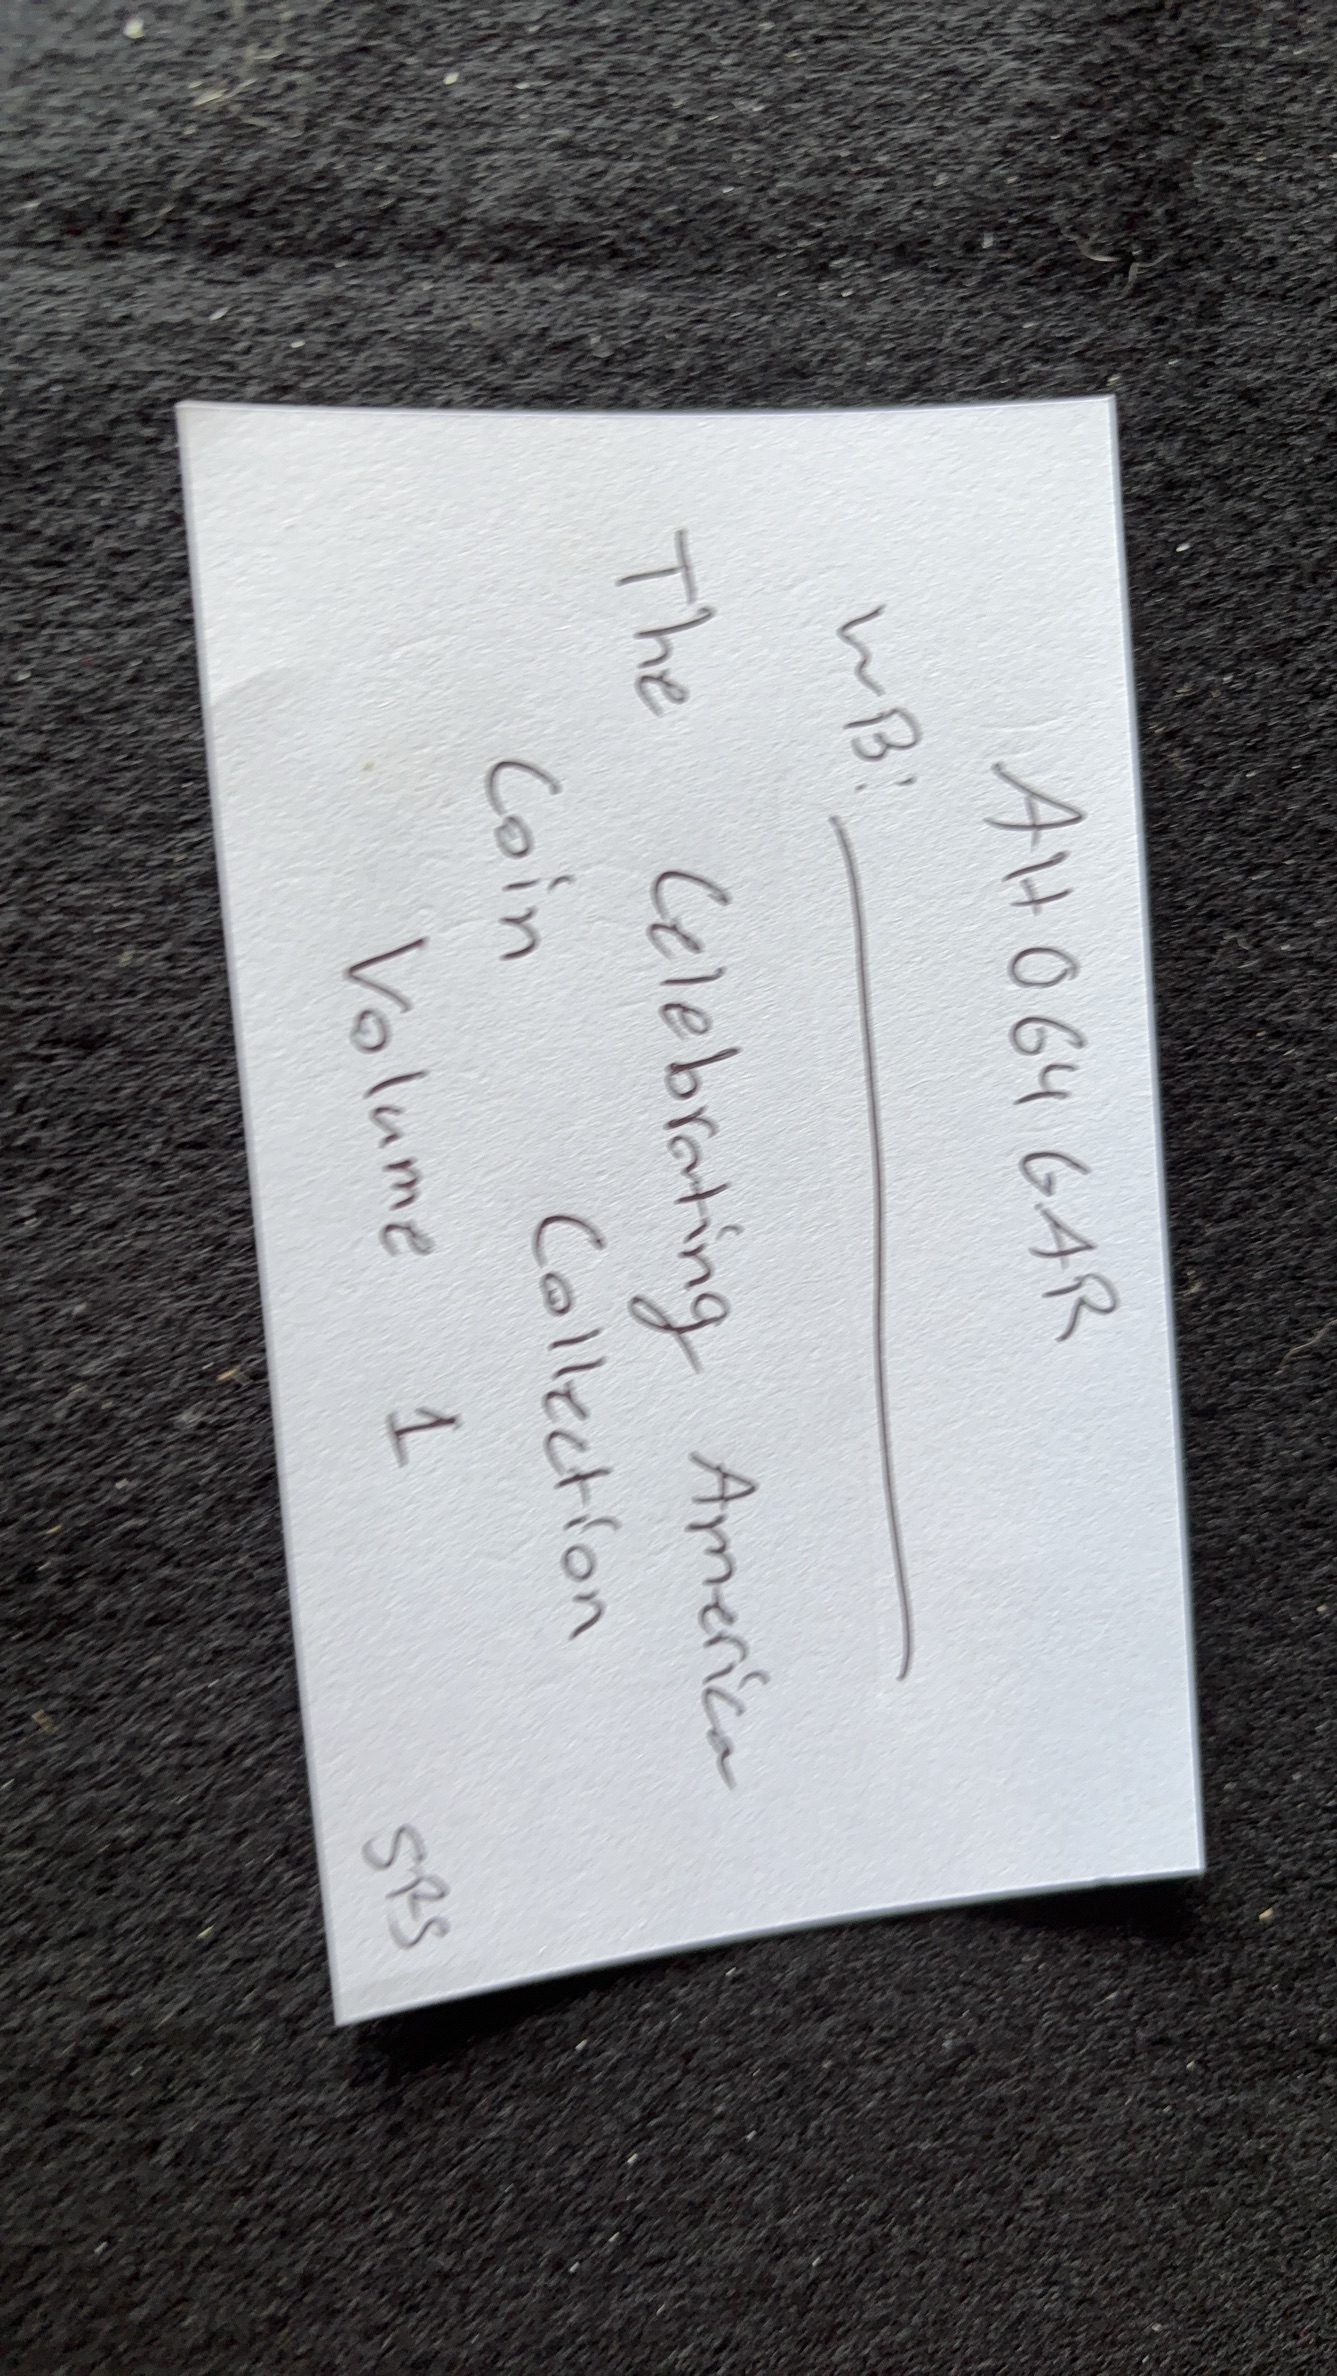 AH0G4GAR
WB:
The Celebrating America
Coin Collection
Volume 1
SRS